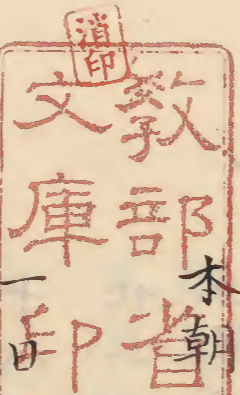 消印
教部省
文庫印
本朝
一曰